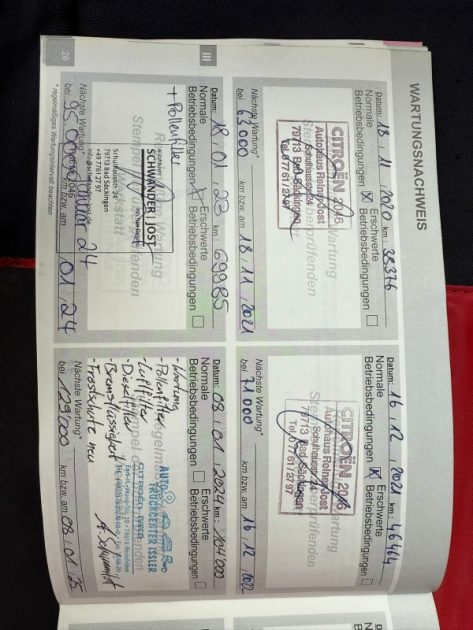 WARTUNGSNACHWEIS
Datum: 18 . 11 . 2020 km: 36376
Normale Betriebsbedingungen ☒
Erschwerte Betriebsbedingungen ☐
CITROËN
Autohaus Reiner Jost
Schulhausstr. 24
79713 Bad Säckingen
Tel. 07761/2797
Nächste Wartung*
bei 63000 km bzw. am 18 . 11 . 2021
Datum: 16 . 12 . 2021 km: 46464
Normale Betriebsbedingungen ☒
Erschwerte Betriebsbedingungen ☐
CITROËN
Autohaus Reiner Jost
Schulhausstr. 24
79713 Bad Säckingen
Tel. 07761/2797
Nächste Wartung*
bei 71000 km bzw. am 16 . 12 . 2022
III
Datum: 18 . 01 . 23 km: 69985
Normale Betriebsbedingungen
Erschwerte Betriebsbedingungen ☐
+ Pollenfilter
SCHWANDER | JOST
Schulhausstr. 24
79713 Bad Säckingen
+49 7761 27 97
Nächste Wartung*
bei 95000 km bzw. am 01 . 24
* regelmäßiges Wartungsintervall beachten
26
Datum: 08 . 01 . 2024 km: 104'000
Normale Betriebsbedingungen ☐
Erschwerte Betriebsbedingungen ☐
- Wartung
- Pollenfilter
- Luftfilter
- Dieselfilter
- Bremsflüssigkeit
- Frostschutz neu
AUTO
TRUCKCENTER ISSLER
A. Schmidt
Nächste Wartung*
bei 129'000 km bzw. am 08 . 01 . 25